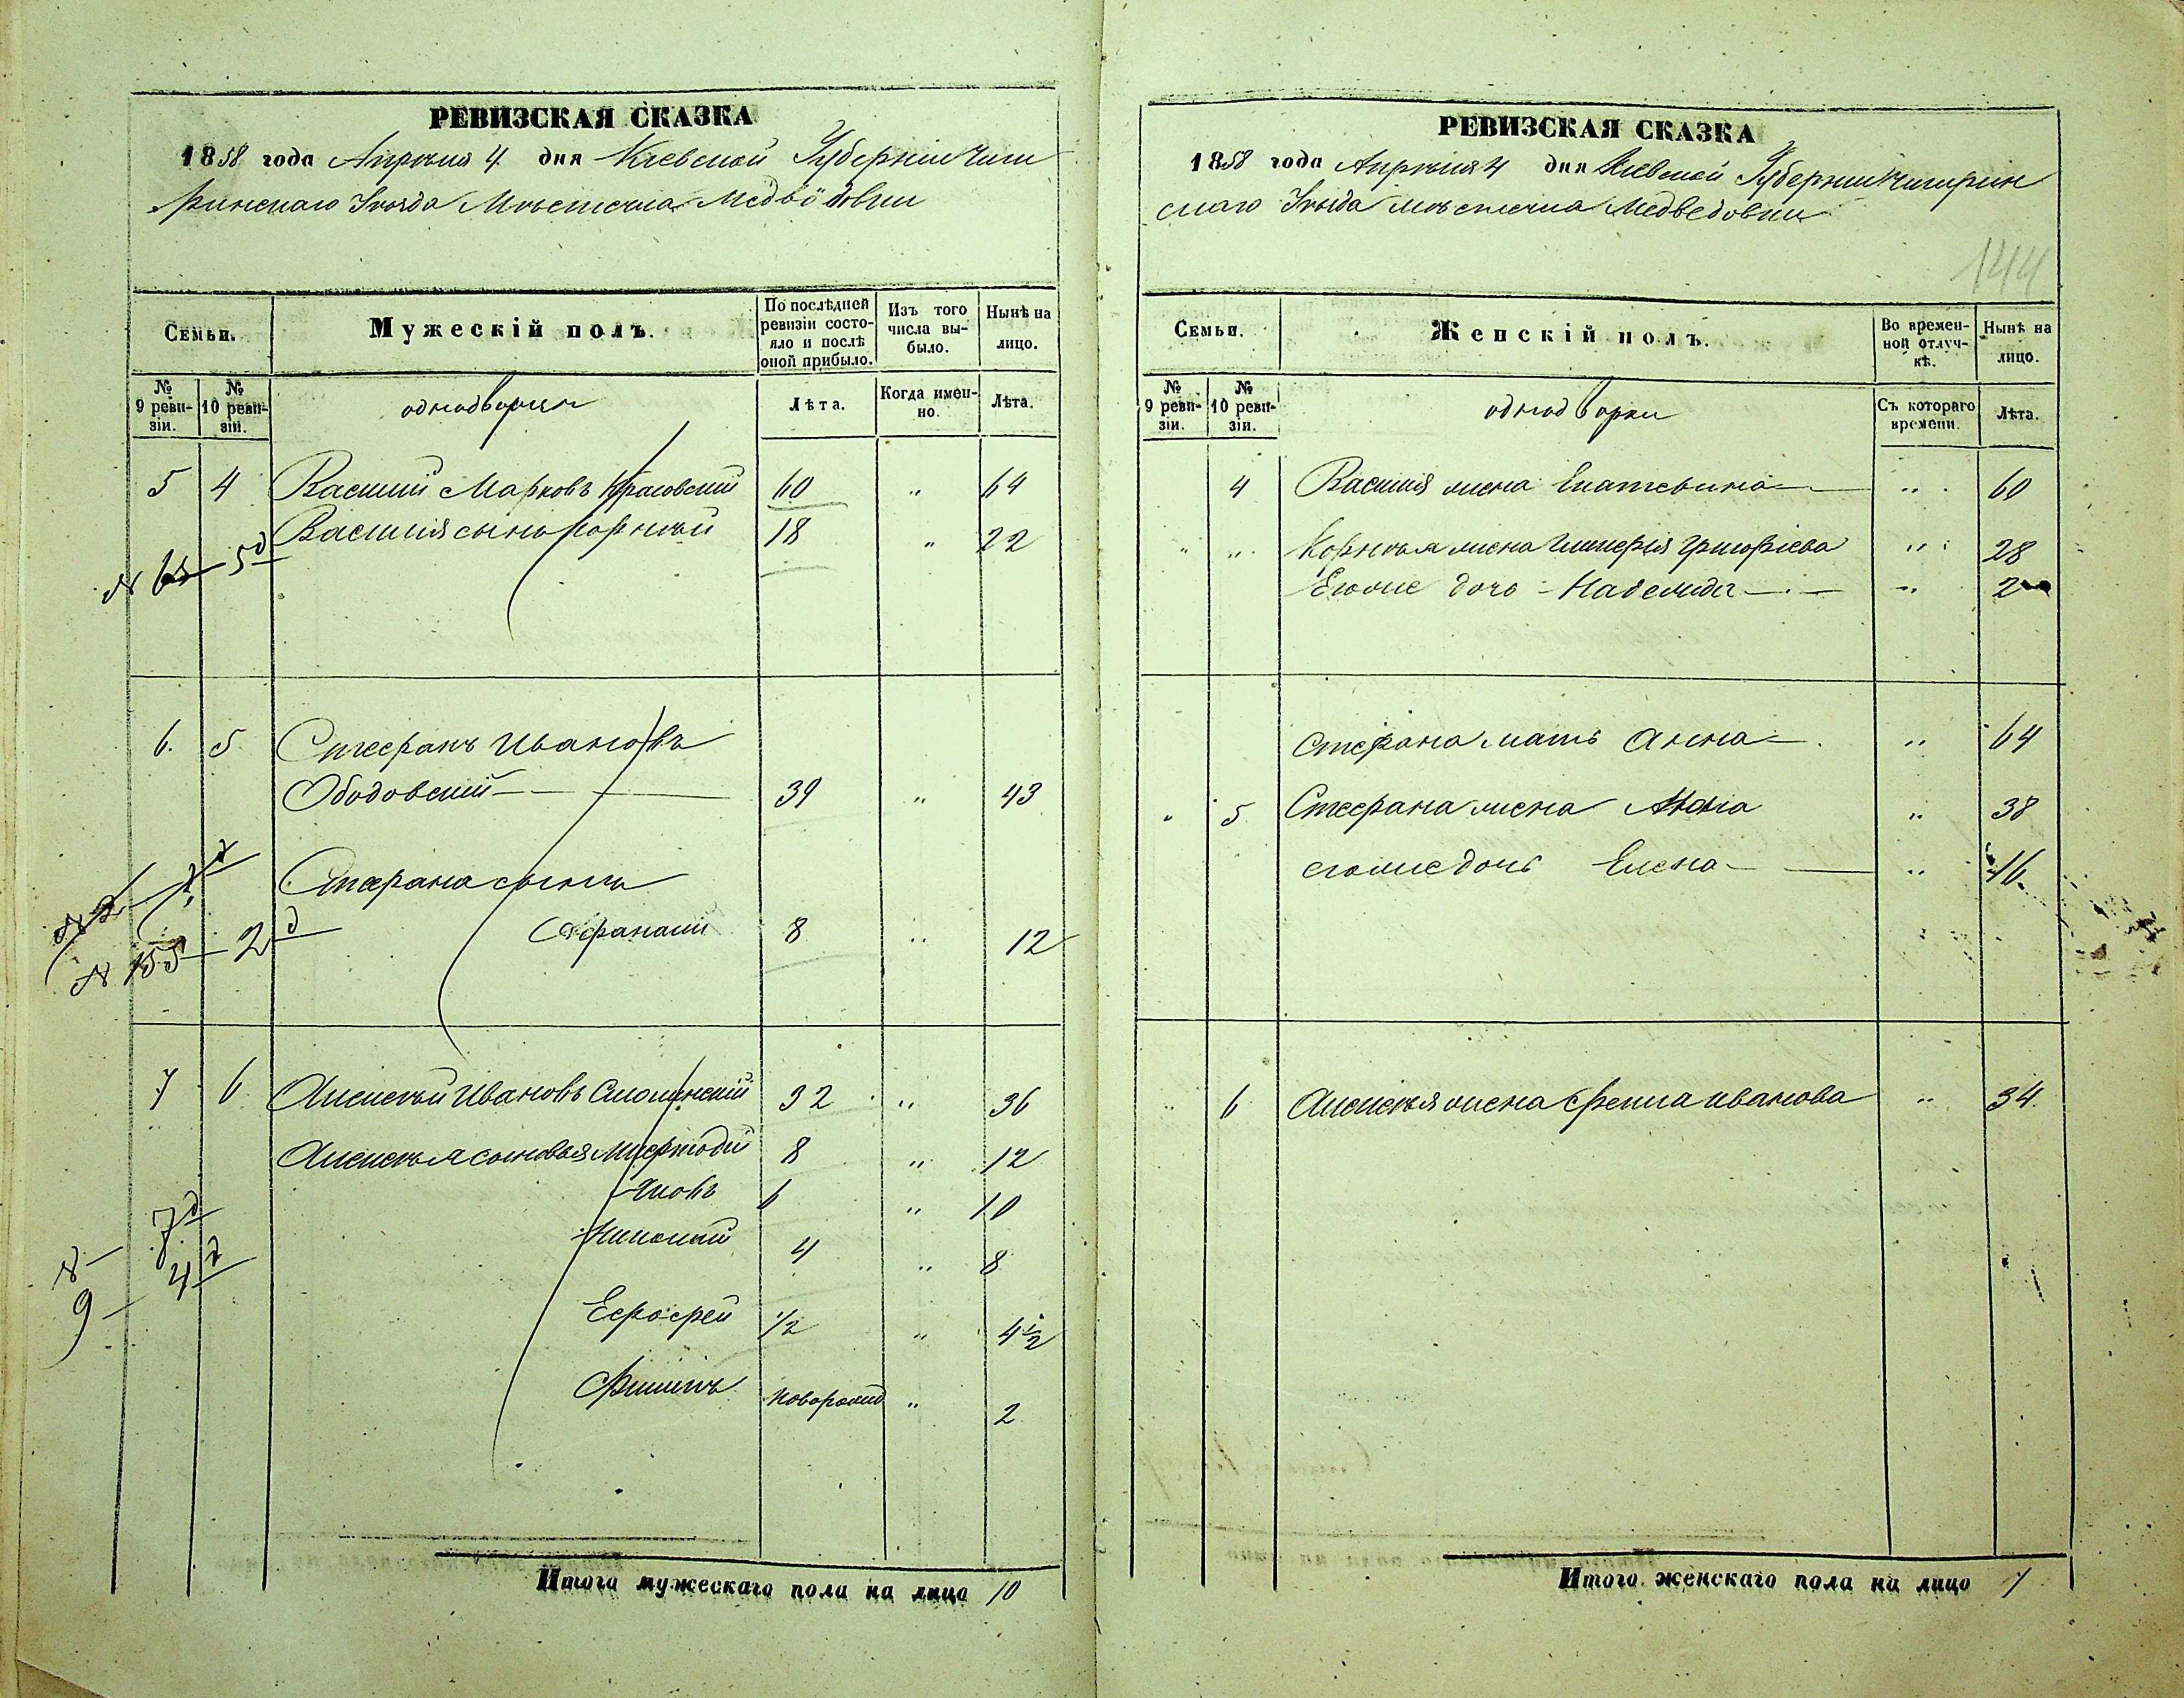 РЕВИЗСКАЯ СКАЗКА
1858 года Апреля 4 дня Киевской Губерніи Чиги
ринскаго Уезда Местечка Медвёдовки
Семьи.
Мужескій полъ.
По послѣдней ревизіи состояло и послѣ оной прибыло.
Изъ того числа выбыло.
Нынѣ на лицо.
№ 9 ревизіи.
№ 10 ревизіи.
однодворцы
Лѣта.
Когда именно.
Лѣта.
5 4 Василий Марковъ Красовский 60 " 64
Василия сынъ Корней 18 " 22
6. 5 Стефанъ Ивановъ
Ободовский 39 " 43
Стефана сынъ
Афанасий 8 " 12
7 6 Алексей Ивановъ Смолинский 32 " 36
Алексея сыновья Мефодий 8 " 12
Яковъ 6 " 10
Николай 4 " 8
1/2 " 4 1/2
Филипъ новорожд " 2
Итого мужескаго пола на лицо 10
РЕВИЗСКАЯ СКАЗКА
1858 года Апреля 4 дня Киевской Губернии Чигирин
скаго Уезда местечка Медведовки
144
Семьи.
Женскій полъ.
Во временной отлучкѣ.
Нынѣ на лицо.
№ 9 ревизіи.
№ 10 ревизіи.
однодворки
Съ котораго времени.
Лѣта.
4 Василия жена Екатерина " 60
" " Корнея жена Гликерія Григоріева " 28
Егоже дочь Надежда " 2
Стефана мать Анна " 64
" 5 Стефана жена Анна " 38
егоже дочь Елена " 16
6 Алексея жена Фекла иванова " 34
Итого женскаго пола на лицо 7